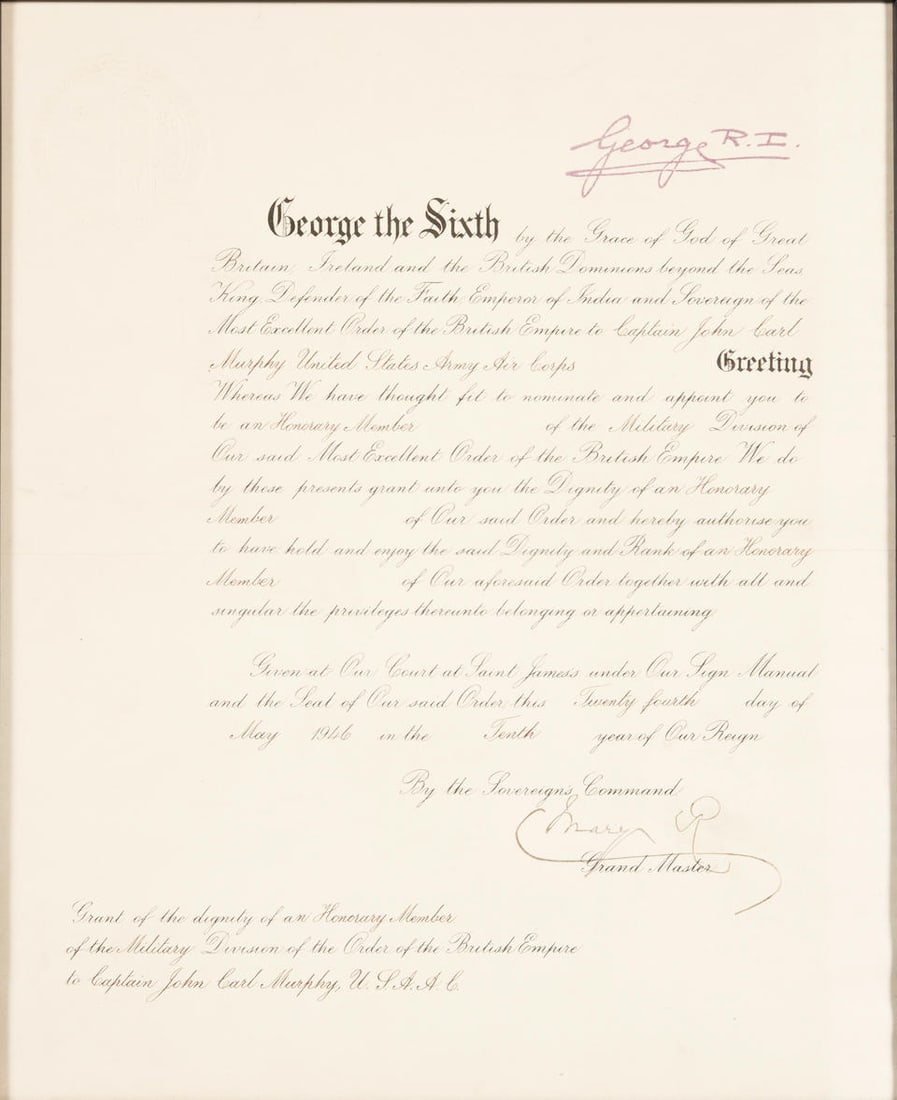 George R.I.
George the Sixth by the Grace of God of Great
Britain, Ireland and the British Dominions beyond the Seas,
King, Defender of the Faith, Emperor of India and Sovereign of the
Most Excellent Order of the British Empire to Captain John Carl
Murphy United States Army Air Corps Greeting
Whereas We have thought fit to nominate and appoint you to
be an Honorary Member of the Military Division of
Our said Most Excellent Order of the British Empire We do
by these presents grant unto you the Dignity of an Honorary
Member of Our said Order and hereby authorise you
to have hold and enjoy the said Dignity and Rank of an Honorary
Member of Our aforesaid Order together with all and
singular the privileges thereunto belonging or appertaining
Given at Our Court at Saint James's under Our Sign Manual
and the Seal of Our said Order this Twenty fourth day of
May 1946 in the Tenth year of Our Reign
By the Sovereign's Command
Mary R
Grand Master
Grant of the dignity of an Honorary Member
of the Military Division of the Order of the British Empire
to Captain John Carl Murphy, U.S.A.A.C.